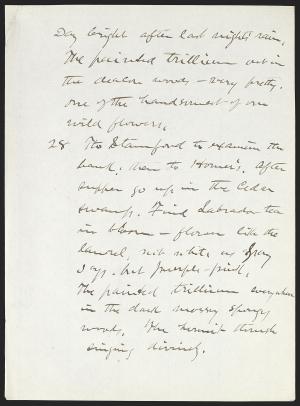 Day bright after last nights rain,
The painted trillium out in
the deacon woods - very pretty.
one of the handsomest of our
wild flowers.
28 To Stamford to examine the
bank, then to Homer's. After
supper go up in the Cedar
swamp. Find Labrador tea
in bloom - flower like the
laurel, not white as Gray
says, but purple-pink.
The painted trillium everywhere
in the dark mossy spongy
woods. The hermit thrush
singing divinely.